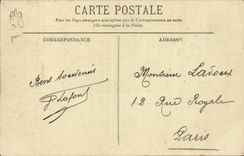 CARTE POSTALE
Tous les Pays étrangers n'acceptent pas la Correspondance au recto.
(Se renseigner à la Poste)
CORRESPONDANCE
ADRESSE
Bons souvenirs
P Lafont
Monsieur Lavoux
12 Rue Royale
Paris